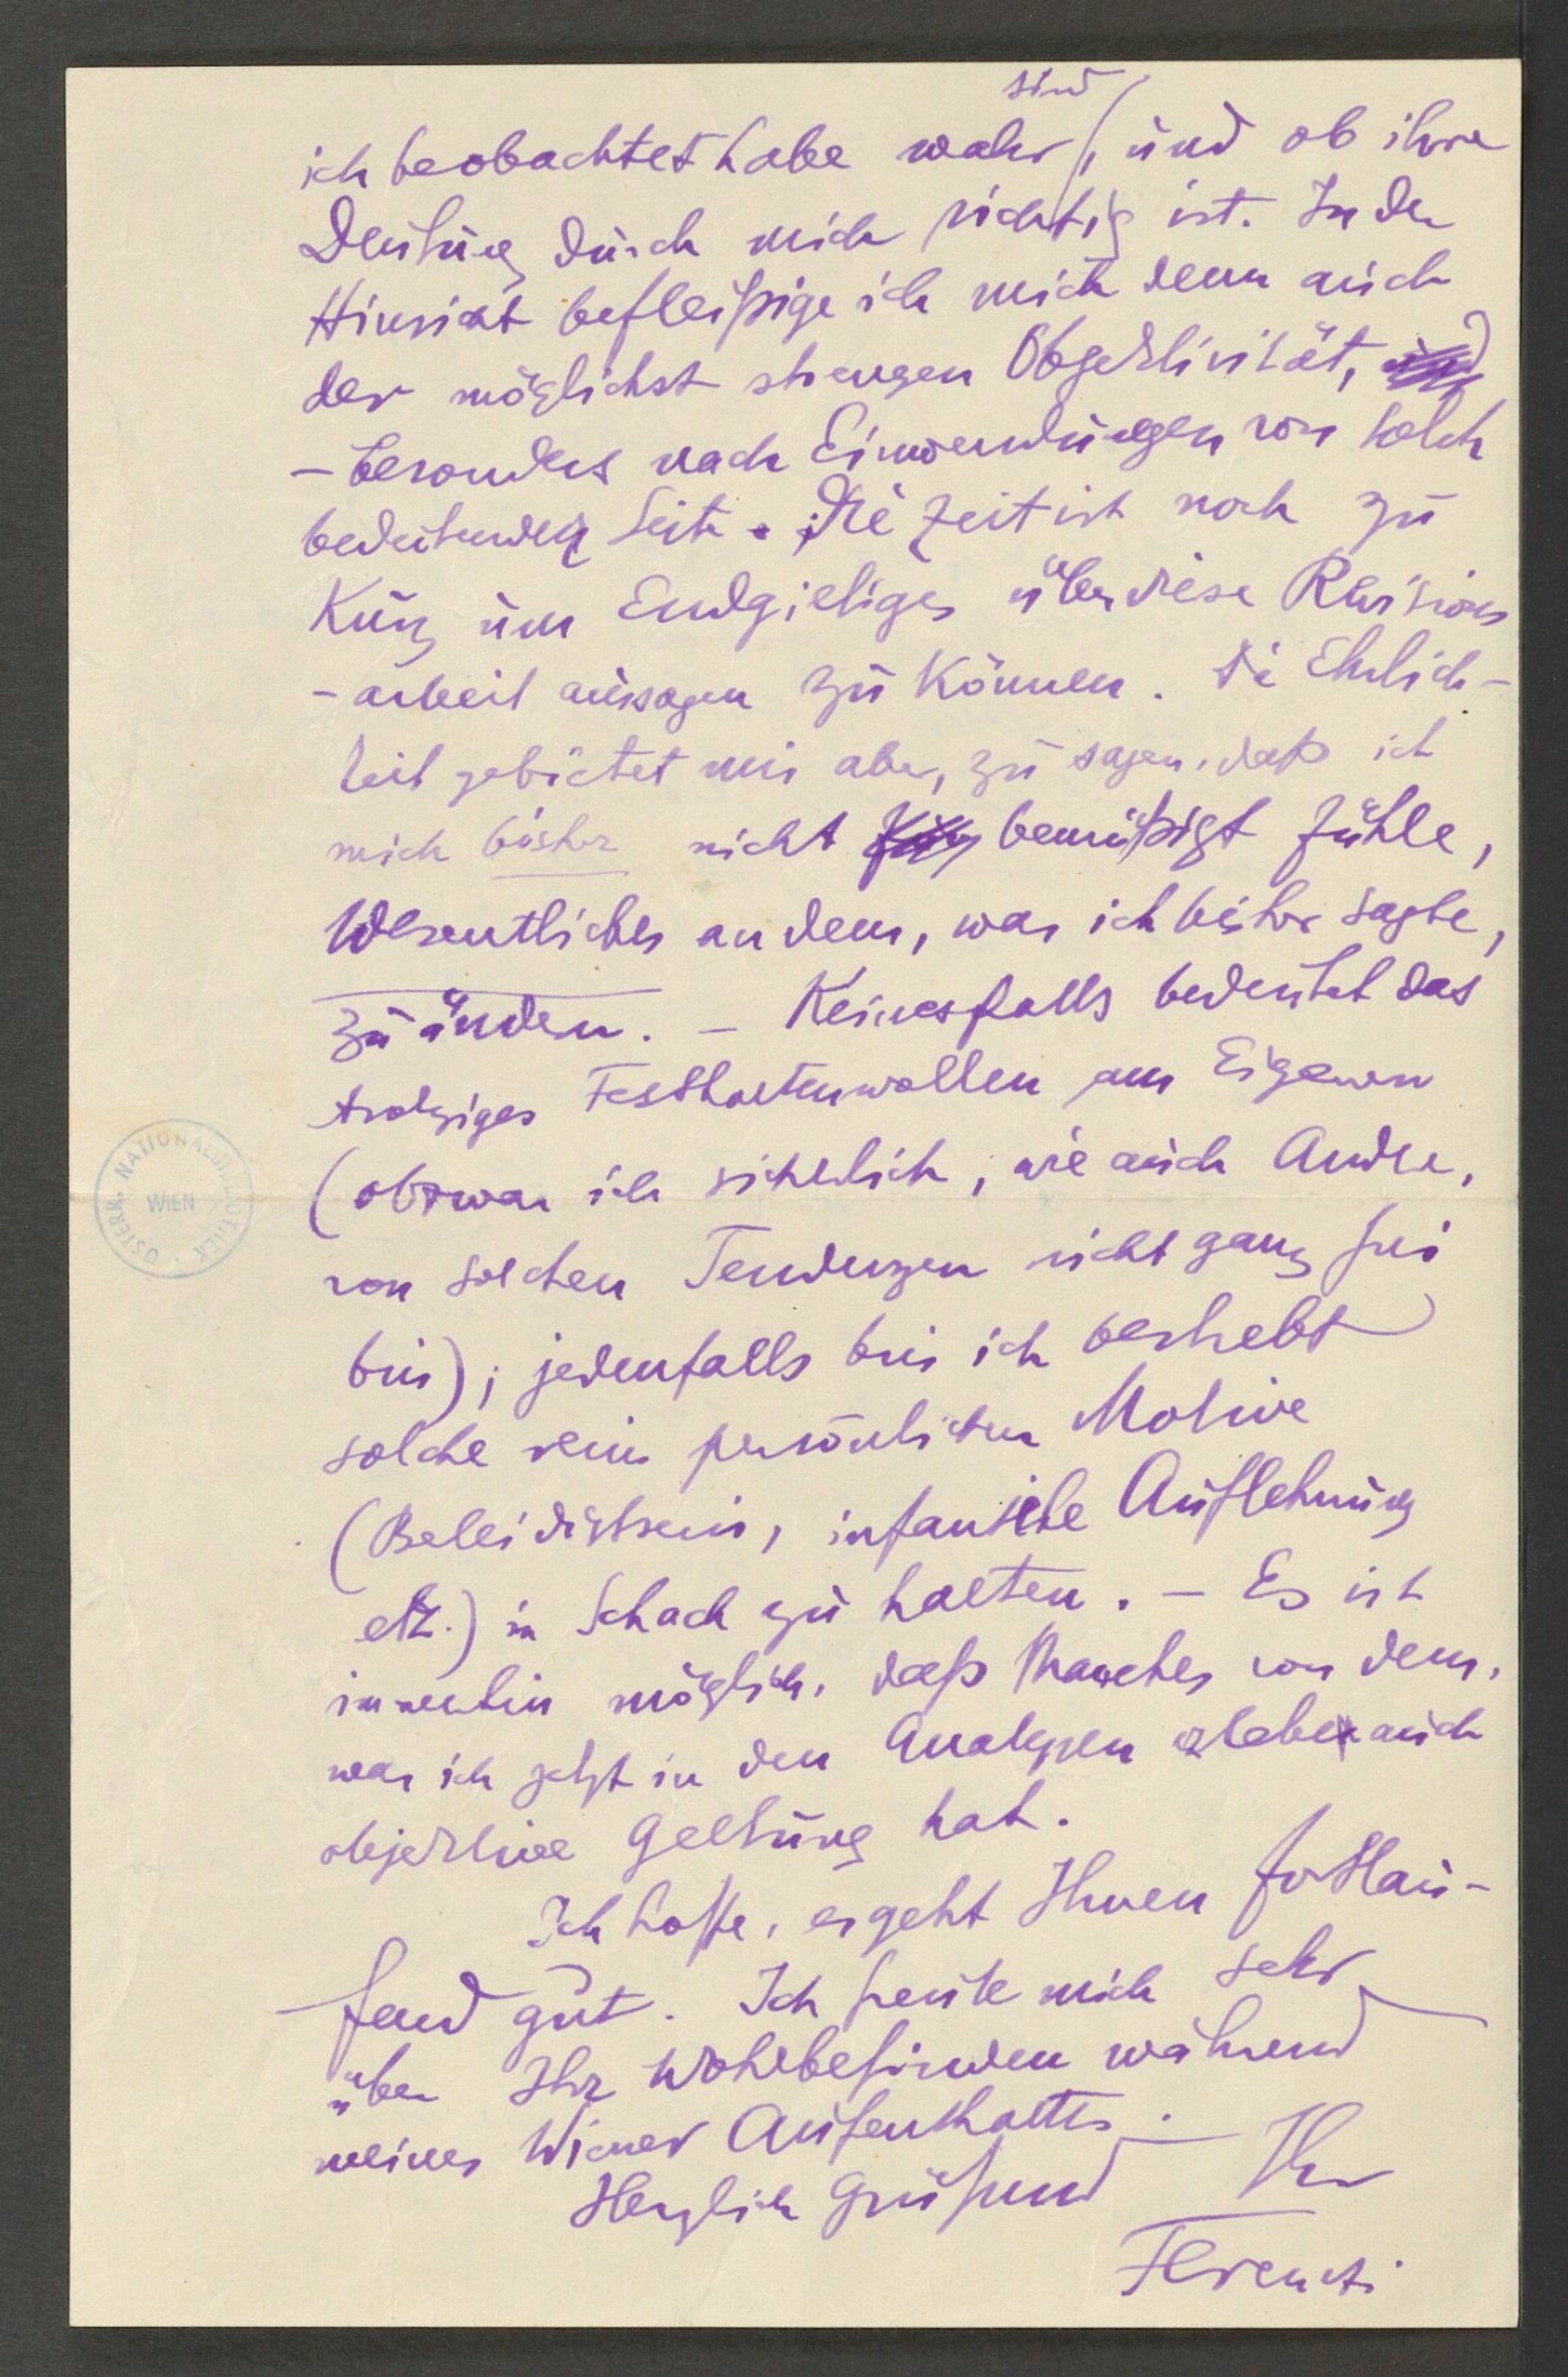 sind
ich beobachtet habe wahr, und ob ihre
Deutung durch mich richtig ist. In der
Hinsicht befleißige ich mich denn auch
der möglichst strengen Objektivität,
– besonders nach Einwendungen von solch
bedeutender Seite. Die Zeit ist noch zu
Kurz um Endgiltiges über diese Revisions
-arbeit aussagen zu Können. Die Ehrlich-
keit gebietet mir aber, zu sagen, daß ich
mich bisher nicht bemüßigt fühle,
Wesentliches an dem, was ich bisher sagte,
zu ändern. – Keinesfalls bedeutet das
trotziges Festhaltenwollen am Eigenen
(obzwar ich sicherlich, wie auch Andre,
von solchen Tendenzen nicht ganz frei
bin); jedenfalls bin ich bestrebt
solche rein persönlichen Motive
(Beleidigtsein, infantile Auflehnung
etz.) in Schach zu halten. – Es ist
immerhin möglich, daß Manches von dem,
was ich jetzt in den Analysen erlebe auch
objektive Geltung hat.
Ich hoffe, es geht Ihnen fortlau-
fend gut. Ich freute mich sehr
über Ihr Wohlbefinden während
meines Wiener Aufenthaltes.
Herzlich grüßend Ihr
Ferenczi
ÖSTERR. NATIONALBIBLIOTHEK
WIEN